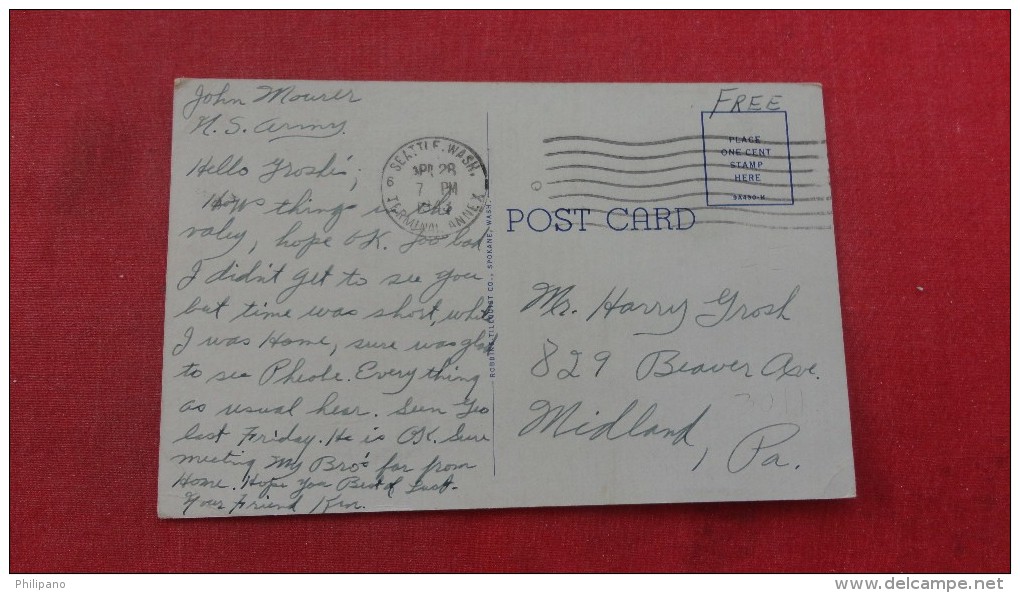 John Mourer
U.S. Army.
Hello Grosh's,
How's things in the
valey, hope OK. Too bad
I didn't get to see you
but time was short, while
I was Home, sure was glad
to see Pheobe. Everything
as usual hear. Seen Geo
last Friday. He is OK. Sure
meeting My Bro's far from
Home. Hope you Best of Luck-
Your Friend
SEATTLE, WASH.
6
APR 28
7 PM
1943
TERMINAL ANNEX
ROBBINS-TILLQUIST CO., SPOKANE, WASH.
FREE
PLACE
ONE CENT
STAMP
HERE
POST CARD
Mr. Harry Grosh
829 Beaver Ave.
3011
Midland,
Pa.
Philipano
www.delcampe.net